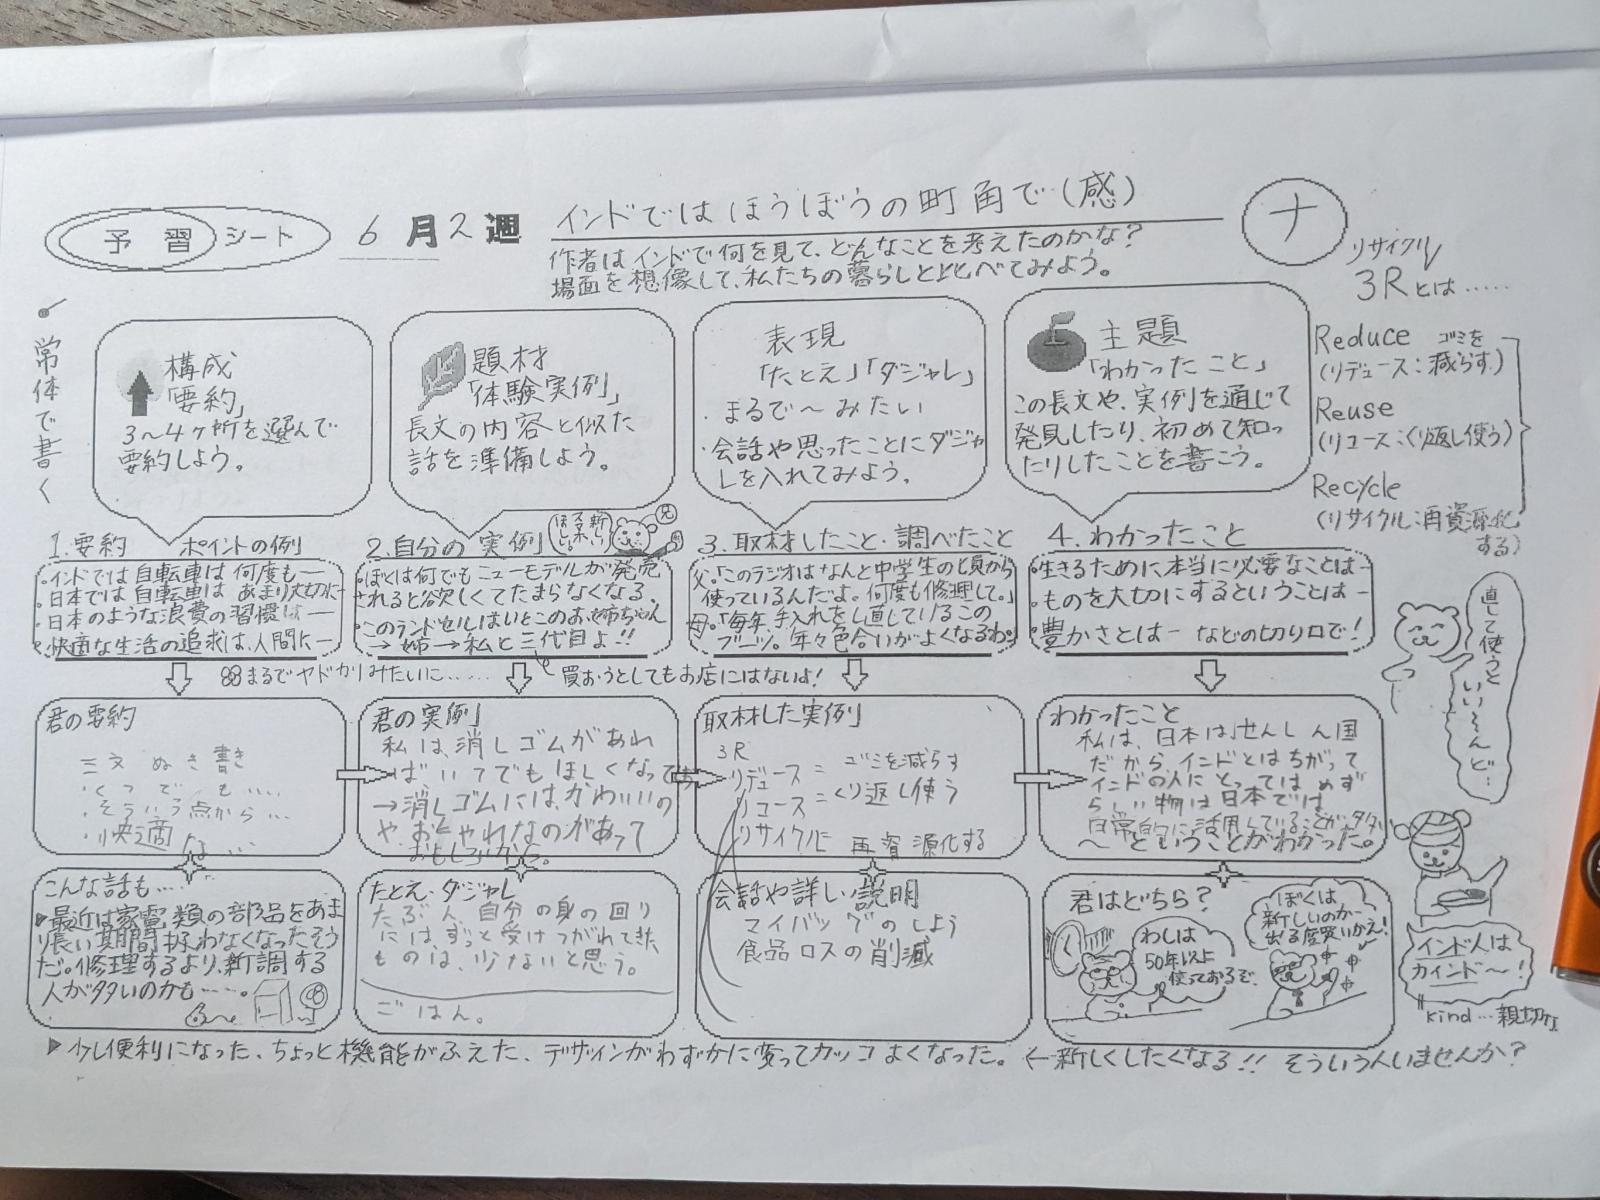 予習シート
6月2週
インドではほうぼうの町角で(感)
ナ
作者はインドで何を見て、どんなことを考えたのかな?
場面を想像して、私たちの暮らしと比べてみよう。
常体で書く
構成
「要約」
3〜4ヶ所を選んで
要約しよう。
題材
「体験実例」
長文の内容と似た
話を準備しよう。
表現
「たとえ」「ダジャレ」
・まるで〜みたい
・会話や思ったことにダジャ
レを入れてみよう。
主題
「わかったこと」
この長文や、実例を通じて
発見したり、初めて知っ
たりしたことを書こう。
リサイクル
3Rとは……
Reduce ゴミを
(リデュース:減らす)
Reuse
(リユース:くり返し使う)
Recycle
(リサイクル:再資源化
する)
1.要約 ポイントの例
・インドでは自転車は何度も―
・日本では自転車はあまり大切に―
・日本のような浪費の習慣は―
・快適な生活の追求は、人間に―
2.自分の実例
新しい
スマホ
ほしい。
・ぼくは何でもニューモデルが発売
されると欲しくてたまらなくなる。
・このランドセルはいとこのお姉ちゃん
→姉→私と三代目よ!!
まるでヤドカリみたいに……
3.取材したこと・調べたこと
父「このラジオはなんと中学生の頃から
使っているんだよ。何度も修理して。」
母「毎年、手入れをし直しているこの
ブーツ。年々色合いがよくなるわ。」
買おうとしてもお店にはないよ!
4.わかったこと
・生きるために本当に必要なことは―
・ものを大切にするということは―
・豊かさとは― などの切り口で!
君の要約
三文 ぬき書き
・くつでも….
・そういう点から…
・快適な…
君の実例
私は、消しゴムがあれ
ばいつでもほしくなっても
→消しゴムには、かわいいの
や、おしゃれなのがあって
おもしろいから。
取材した実例
3R
リデュース=ゴミを減らす
リユース=くり返し使う
リサイクルに 再資源化する
わかったこと
私は、日本は、せんしん国
だから、インドとはちがって
インドの人にとってはめず
らしい物は日本では、
日常的に活用していることが
〜ということがわかった。
こんな話も….
▶最近は家電類の部品をあま
り長い期間扱わなくなったそう
だ。修理するより、新調する
人が多いのかも…..。
たとえ・ダジャレ
たぶん、自分の身の回り
には、ずっと受けつがれてきた
ものは、少ないと思う。
ごはん。
会話や詳しい説明
マイバッグのしよう
食品ロスの削減
君はどちら?
わしは
50年以上
使っておるぞ。
ぼくは
新しいのが
出る度買いかえ!
直して使うと
いい〜んど…
インド人は
カインド〜!
kind…親切な
▶少し便利になった、ちょっと機能がふえた、デザインがわずかに変ってカッコよくなった。←新しくしたくなる!!そういう人いませんか?